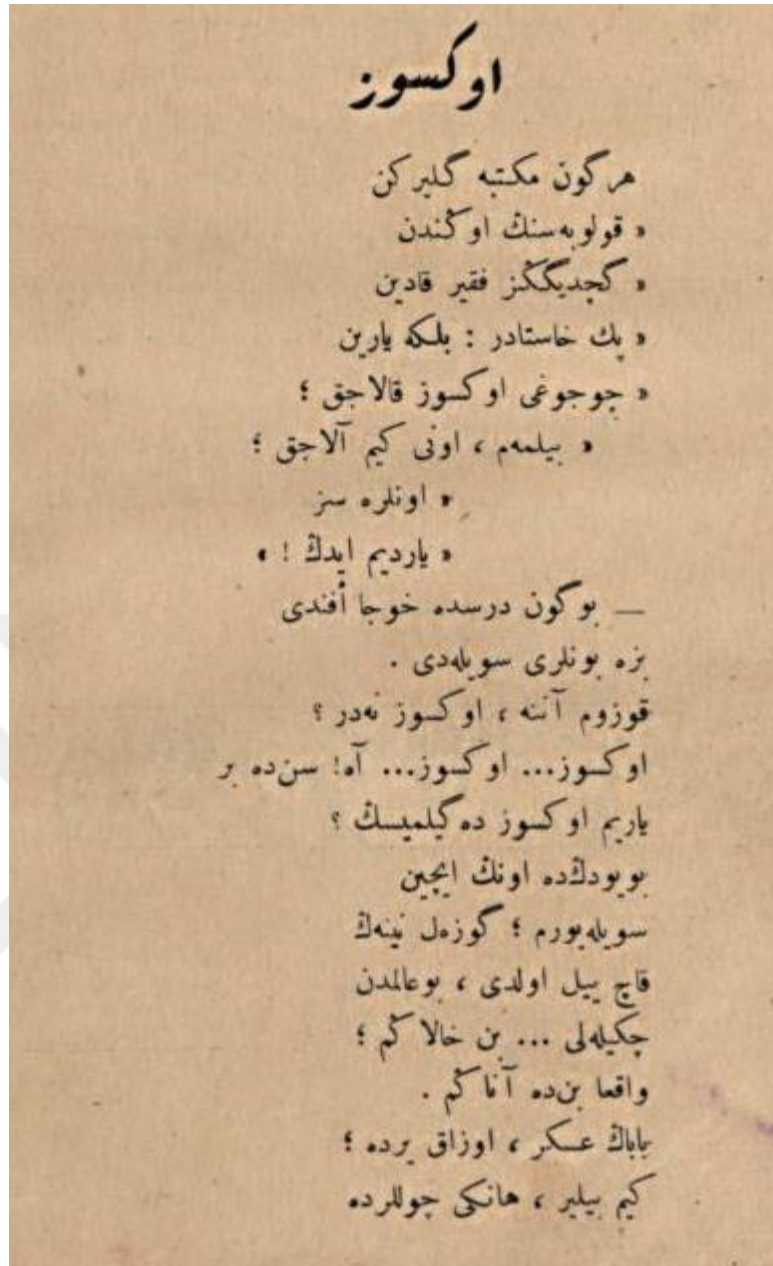 اوكسوز
هر گون مكتبه گلیركن
« قولوبه‌سنڭ اوڭندن
« گچدیگڭز فقیر قادین
« پك خاستادر : بلكه یارین
« چوجوغی اوكسوز قالاجق ؛
« بیلمه‌م ، اونی كیم آلاجق ؛
« اونلره سز
« یاردیم ایدڭ ! »
— بو گون درسده خوجا أفندی
بزه بونلری سویله‌دی .
قوزوم آننه ، اوكسوز نه‌در ؟
اوكسوز... اوكسوز... آه! سن‌ده بر
یاریم اوكسوز ده گیلمیسڭ ؟
بویودڭده اونڭ ایچین
سویله‌یورم ؛ گوزه‌ل نینه‌ڭ
قاچ ییل اولدی ، بو عالمدن
چكیله‌لی ... بن خالاڭم ؛
واقعا بن‌ده آناڭم .
باباڭ عسكر ، اوزاق یرده ؛
كیم بیلیر ، هانكی چوللرده